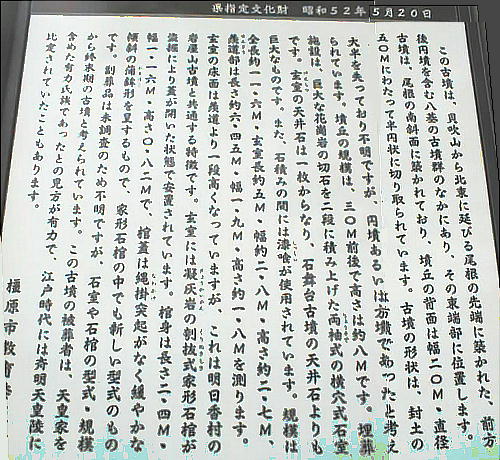 県指定文化財　昭和５２年５月２０日
この古墳は、貝吹山から北東に延びる尾根の先端に築かれた、前方
後円墳を含む八基の古墳群のなかにあり、その東端部に位置します。
古墳は、尾根の南斜面に築かれており、墳丘の背面は幅二〇Ｍ・直径
五〇Ｍにわたって半円状に切り取られています。古墳の形状は、封土の
大半を失っており不明ですが、円墳あるいは方墳であったと考え
られています。墳丘の規模は、三〇Ｍ前後で高さは約八Ｍです。埋葬
施設は、巨大な花崗岩の切石を二段に積み上げた両袖式の横穴式石室
です。玄室の天井石は一枚からなり、石舞台古墳の天井石よりも
巨大なものです。また、石積みの間には漆喰が使用されています。規模は
全長約一一・六Ｍ・玄室長約五Ｍ・幅約二・八Ｍ・高さ約二・七Ｍ、
羨道部は長さ約六・四五Ｍ・幅一・九Ｍ・高さ約一・八Ｍを測ります。
玄室の床面は羨道より一段高くなっていますが、これは明日香村の
岩屋山古墳と共通する特徴です。玄室には凝灰岩の刳抜式家形石棺が
盗掘により蓋が開いた状態で安置されています。棺身は長さ二・四Ｍ・
幅一・一六Ｍ・高さ〇・八二Ｍで、棺蓋は縄掛突起がなく緩やかな
傾斜の蒲鉾形を呈するもので、家形石棺の中でも新しい型式のもの
です。副葬品は未調査のため不明ですが、石室や石棺の型式・規模
から終末期の古墳と考えられています。この古墳の被葬者は、天皇家を
含めた有力氏族であったとの見方が有力で、江戸時代には斉明天皇陵に
比定されていたこともあります。
橿原市教育